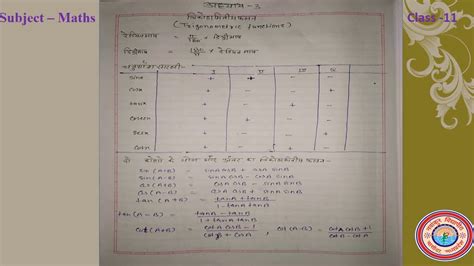 Subject – Maths
Class -11
अध्याय - 3
त्रिकोणमितीय फलन
(Trigonometric functions)
रेडियन माप = π/180 × डिग्री माप
डिग्री माप = 180/π × रेडियन माप
I II III IV
sinx + + - -
cosx + - - +
tanx + - + -
cosecx + + - -
secx + - - +
cotx + - + -
sin(A+B) = sinA cosB + cosA sinB
sin(A-B) = sinA cosB - cosA sinB
cos(A+B) = cosA cosB - sinA sinB
cos(A-B) = cosA cosB + sinA sinB
tan(A+B) = tanA+tanB / 1-tanA tanB
tan(A-B) = tanA-tanB / 1+tanA tanB
cot(A+B) = cotA cotB-1 / cotB + cotA , cot(A-B) = cotA cotB+1 / cotB-cotA